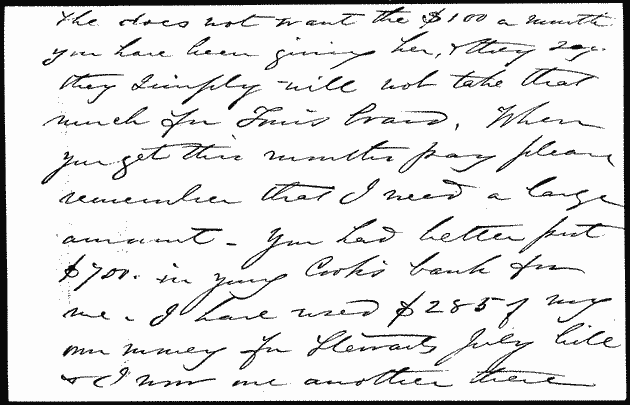 She does not want the $100 a month
you have been giving her, & they say
they simply will not take that
much for Board. When
you get this months pay please
remember that I need a large
amount - You had better put
$700. in Cooks bank for
me. I have used $285 of my
own money for Stewarts July bill
& I now owe another there